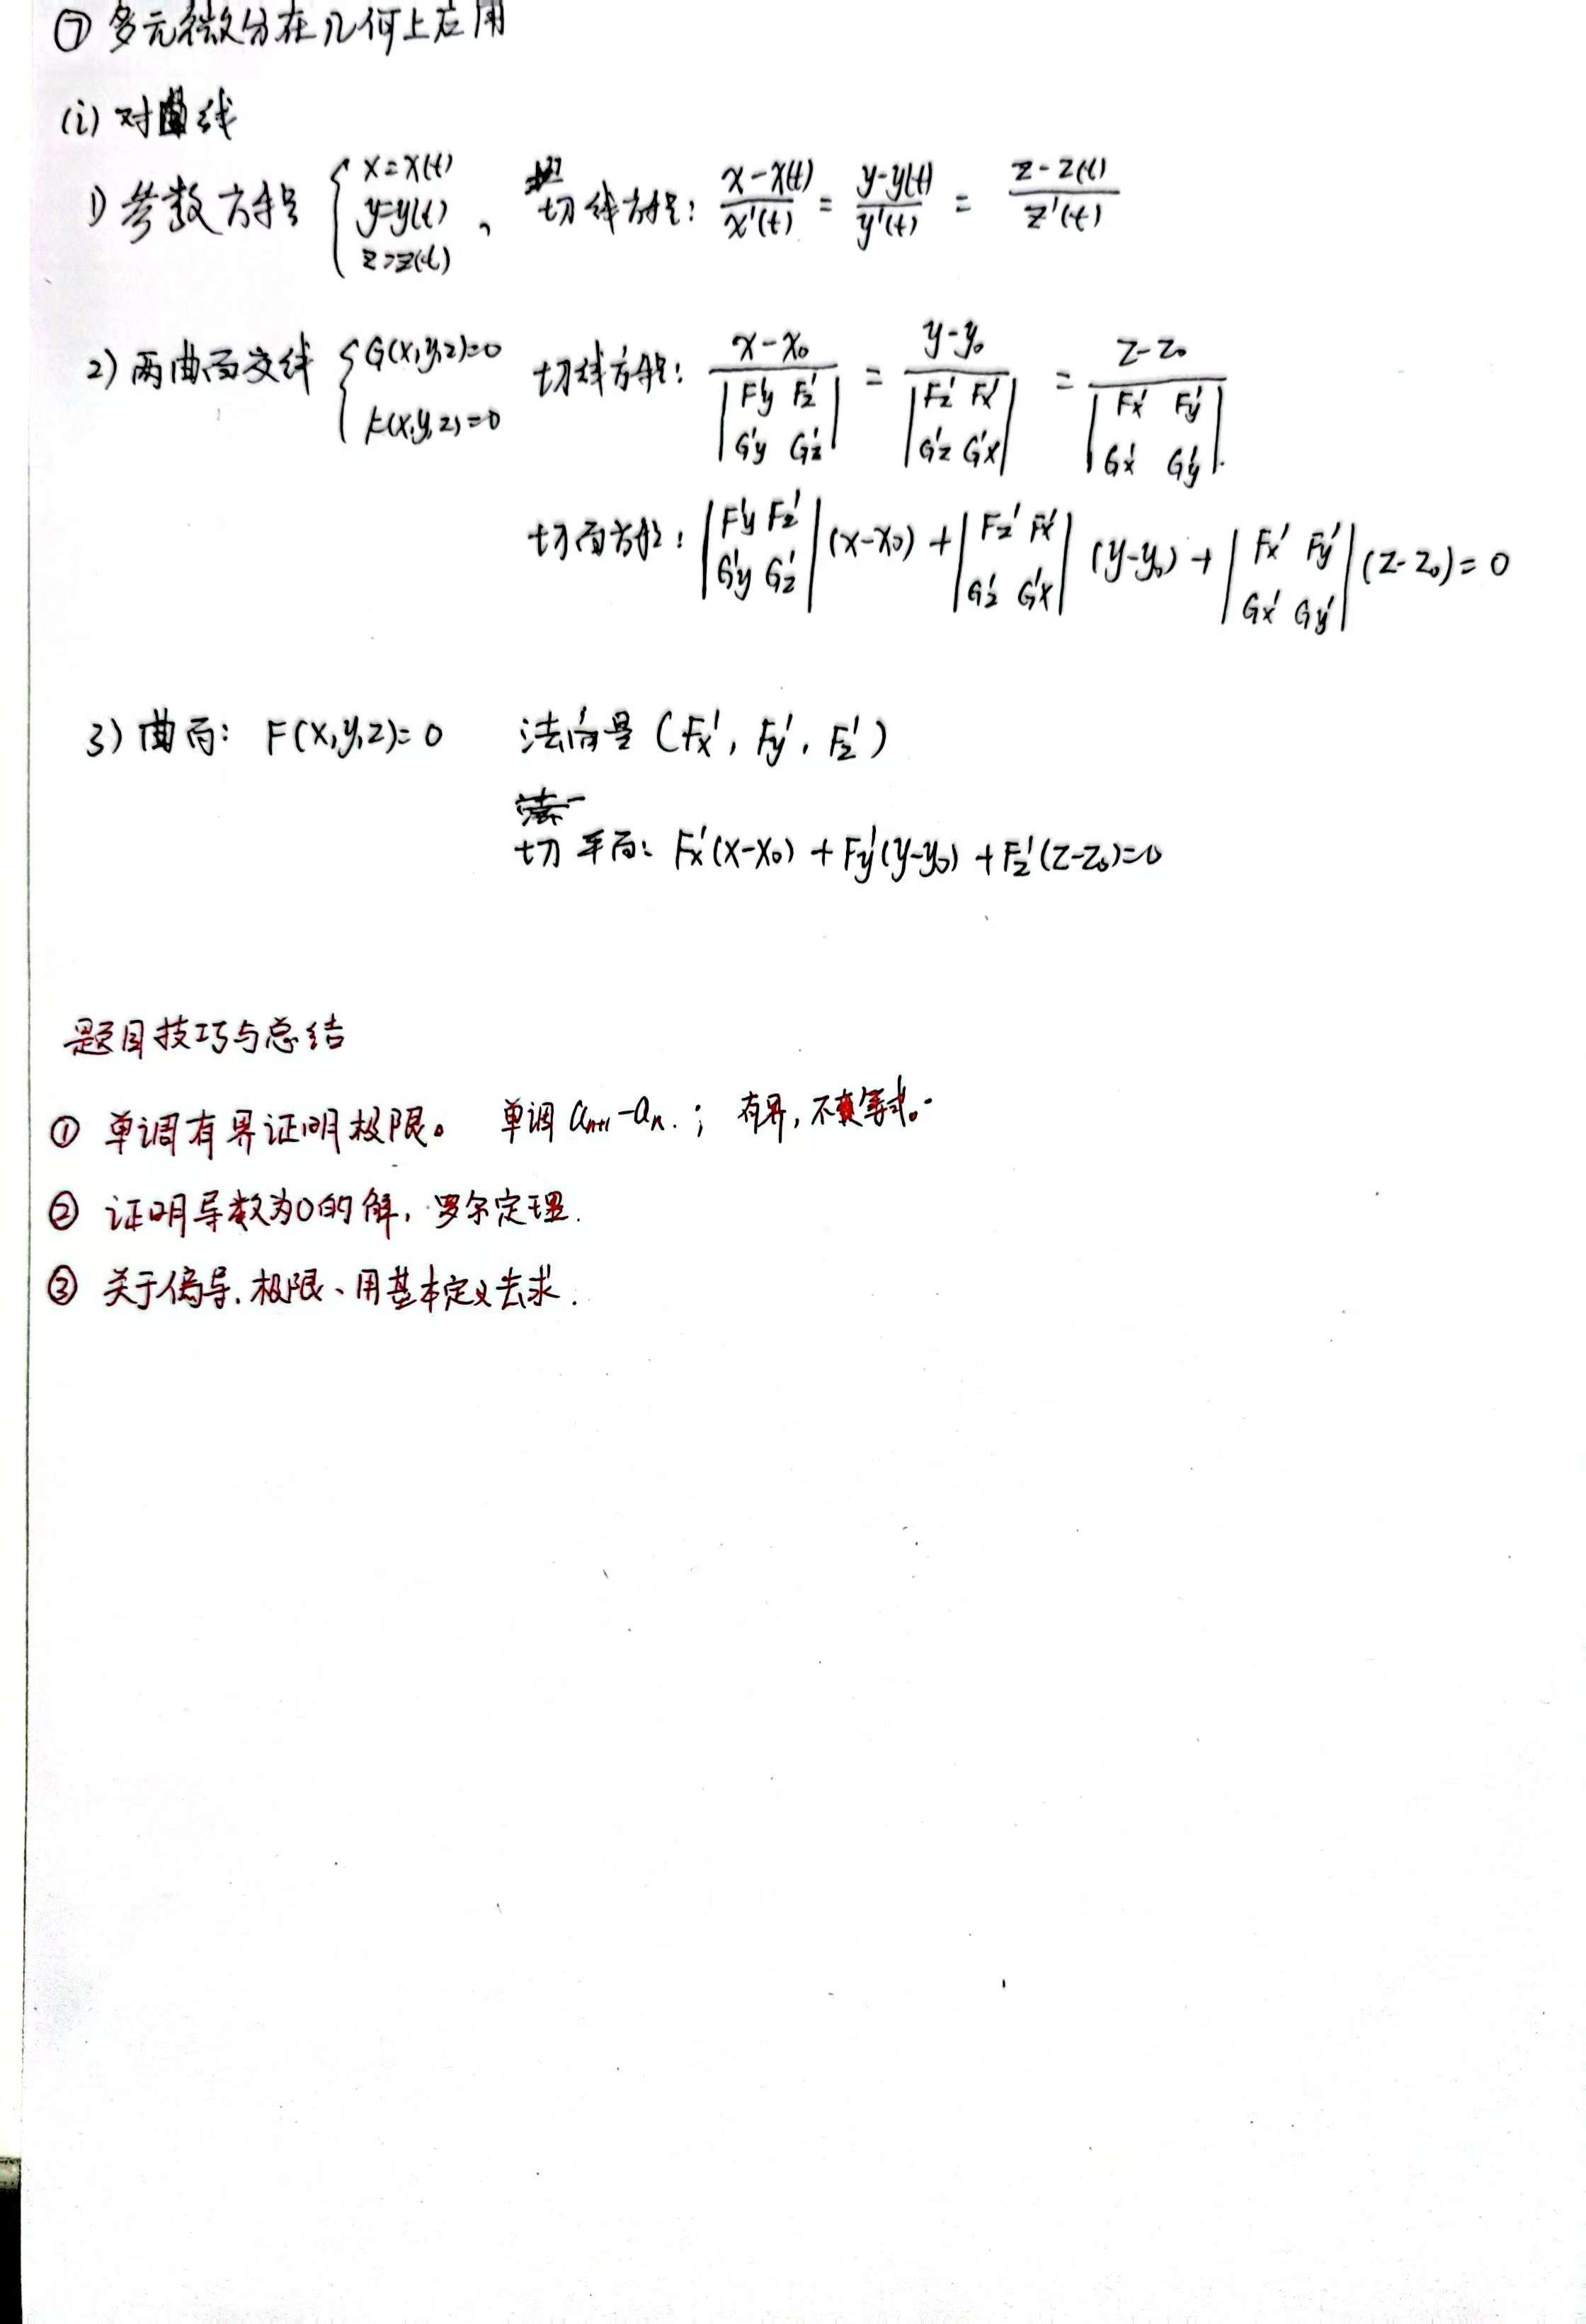 ⑦ 多元微分在几何上应用
(i) 对曲线
1) 参数方程 { x=x(t) y=y(t) z=z(t) 、 切线方程: (x-x(t))/x'(t) = (y-y(t))/y'(t) = (z-z(t))/z'(t)
2) 两曲面交线 { G(x,y,z)=0 F(x,y,z)=0 切线方程: (x-x₀)/|Fy' Fz'; Gy' Gz'| = (y-y₀)/|Fz' Fx'; Gz' Gx'| = (z-z₀)/|Fx' Fy'; Gx' Gy'|.
切面方程: |Fy' Fz'; Gy' Gz'|(x-x₀) + |Fz' Fx'; Gz' Gx'|(y-y₀) + |Fx' Fy'; Gx' Gy'|(z-z₀)=0
3) 曲面: F(x,y,z)=0 法向量 (Fx', Fy', Fz')
切平面: Fx'(x-x₀) + Fy'(y-y₀) + Fz'(z-z₀)=0
题目技巧与总结
① 单调有界证明极限。 单调 aₙ₊₁-aₙ. ; 有界, 不等式。
② 证明导数为0的解, 罗尔定理.
③ 关于偏导. 极限、用基本定义去求.